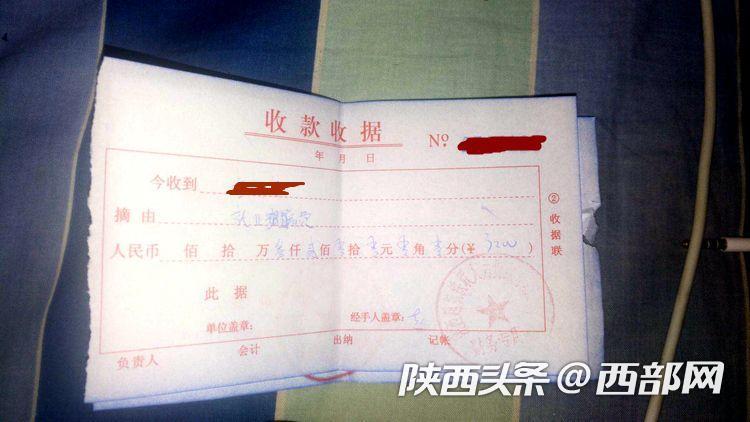 收款收据
No.
年 月 日
今收到
摘由
人民币 佰 拾 万叁仟贰佰零拾零元零角零分(¥ 3200 )
②收据联
此据
单位盖章: 经手人盖章:
负责人 会计 出纳 记帐
陕西头条@西部网